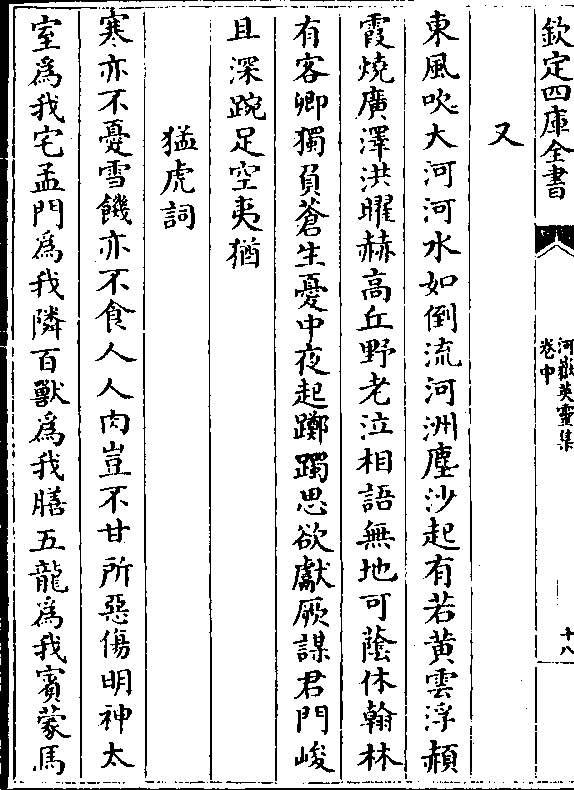 欽定四庫全書
河嶽英靈集
卷中
十八
又
東風吹大河河水如倒流河洲塵沙起有若黄雲浮赬
霞燒廣澤洪曜赫高丘野老泣相語無地可蔭休翰林
有客卿獨負蒼生憂中夜起躑躅思欲獻厥謀君門峻
且深踠足空夷猶
猛虎詞
寒亦不憂雪饑亦不食人人肉豈不甘所惡傷明神太
室為我宅孟門為我隣百獸為我膳五龍為我賓蒙馬